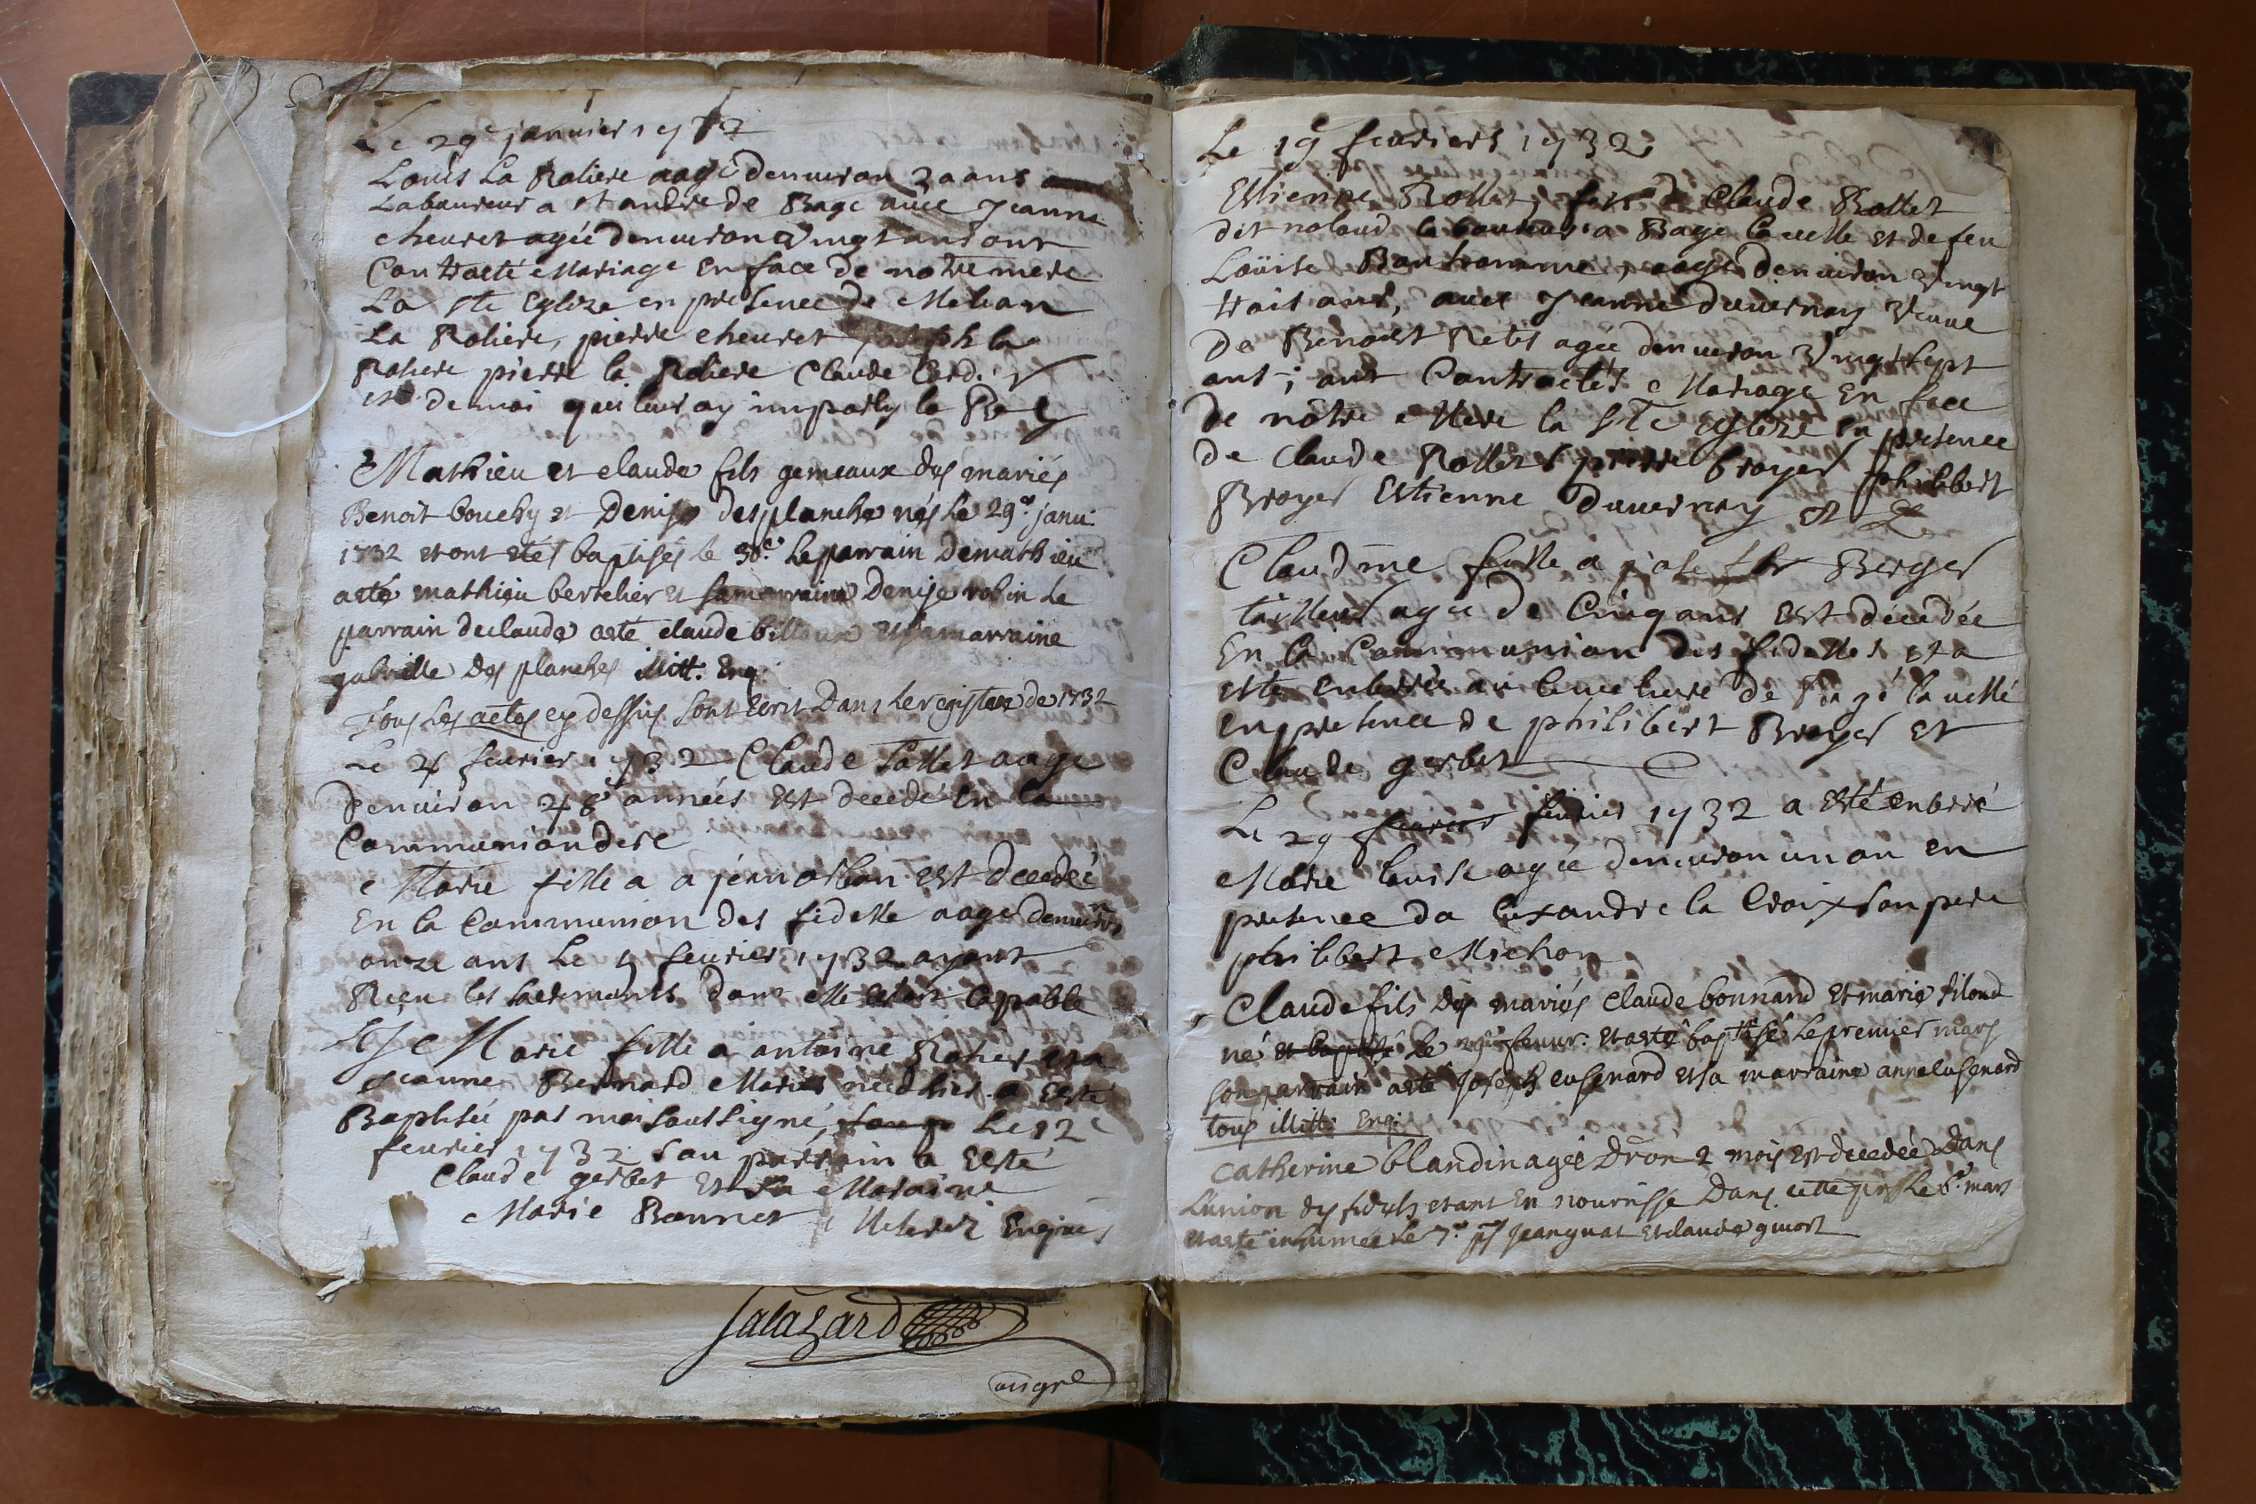 Le 29e januier 1732
Louis La Roliere aagé denuiron 30 ans
Laboureur a st andre de Bage auec Jeanne
cheuret agée denuiron vingt ans ont
Contracté Mariage en face de notre mere
La ste Eglize en presence de
La Roliere, pierre cheuret joseph la
Roliere pierre la Roliere Claude
et de moi qui leur ay imparty la
Mathieu et claude fils gemeaux des mariés
Benoit bouchy et Denise desplanche nés le 29e. janu.
1732 et ont etés baptisés le 30e. le parrain de mathieu
aeté mathieu bertelier et sa marraine Denise robin le
parrain de claude aeté claude billoux et sa marraine
gabrielle des planches illitt. Enq.
Tous les actes cy dessus sont ecrit Dans le registre de 1732
Le 4 feurier 1732 Claude Sallet aage
denuiron 48 années est decedé en la
Communion de se
Marie fille a a jean est decedeé
En la Communion des fidelle aage denuiron
onze ans Le 4 feurier 1732 ayant
Reçu les sacremants dont elle estoit Capable
Marie fille a antoine Rohier et a
jeanne Bernard Mariés née hier a Esté
Baptisée par moi soussigné, Le 12e
feurier 1732 son parrain a Esté
Claude gerbet et sa Maraine
Marie Bonnet Enquis
salazard
Le 19e feuriers 1732
Estienne Rollet, fils de Claude Rollet
dit noland laboureur a Bage la uille et defeu
Loüise Bontromme, aagé denuiron vingt
trois ans, auec Jeanne duuernay veuue
De Benoist Retis agée denuiron vingt sept
ans; ont Contractés Mariage en face
de nôtre Mere la ste eglize en presence
de Claude Rollet pierre broyer philibert
Broyer Estienne duuernay et
Claudine fille a joseph Berger
tailleur agée de Cinq ans est décedée
En la Communion des fidelles et a
esté enterrée au Cimetiere de Bagé la uille
en presence de philibert Broyer et
Claude gerbet
Le 29 feurier feurier 1732 a esté enterré
Marie louise agée denuiron un an en
presence da lexandre la Croix son pere
philibert Michon
Claude fils des mariés Claude bonnard et marie filond
né et baptisé le feuur. et aeté baptisé le premier mars
son parrain aeté joseph eusenard et sa marraine anne eusenard
tous illitt. Enq.
Catherine blandin agée Dron 2 mois est decedée Dans
L'union des fidels etant en nourisse Dans cette prss le 6e. mars
et aeté inhumée le 7e. pnt jean guat et claude guiort